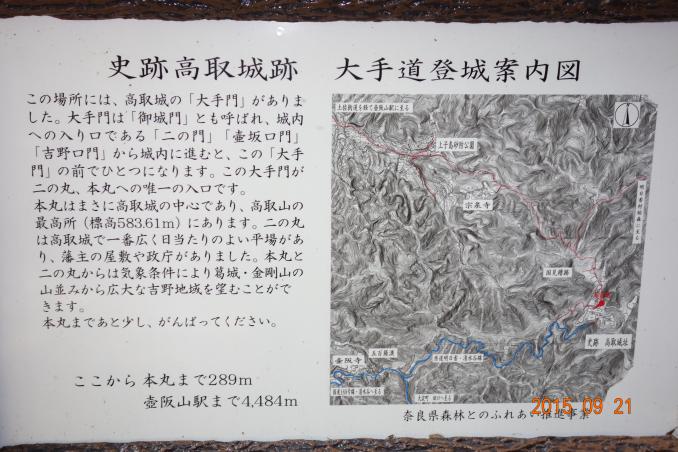 史跡高取城跡　大手道登城案内図
この場所には、高取城の「大手門」がありま
した。大手門は「御城門」とも呼ばれ、城内
への入り口である「二の門」「壷坂口門」
「吉野口門」から城内に進むと、この「大手
門」の前でひとつになります。この大手門が
二の丸、本丸への唯一の入口です。
本丸はまさに高取城の中心であり、高取山の
最高所（標高583.61m）にあります。二の丸
は高取城で一番広く日当たりのよい平場があ
り、藩主の屋敷や政庁がありました。本丸と
二の丸からは気象条件により葛城・金剛山の
山並みから広大な吉野地域を望むことがで
きます。
本丸まであと少し、がんばってください。
ここから 本丸まで289m
壷阪山駅まで4,484m
土佐街道を経て壺阪山駅に至る
上子島砂防公園
宗泉寺
国見櫓跡
史跡 高取城址
五百羅漢
壷阪寺
2015 09 21
奈良県森林とのふれあい推進事業